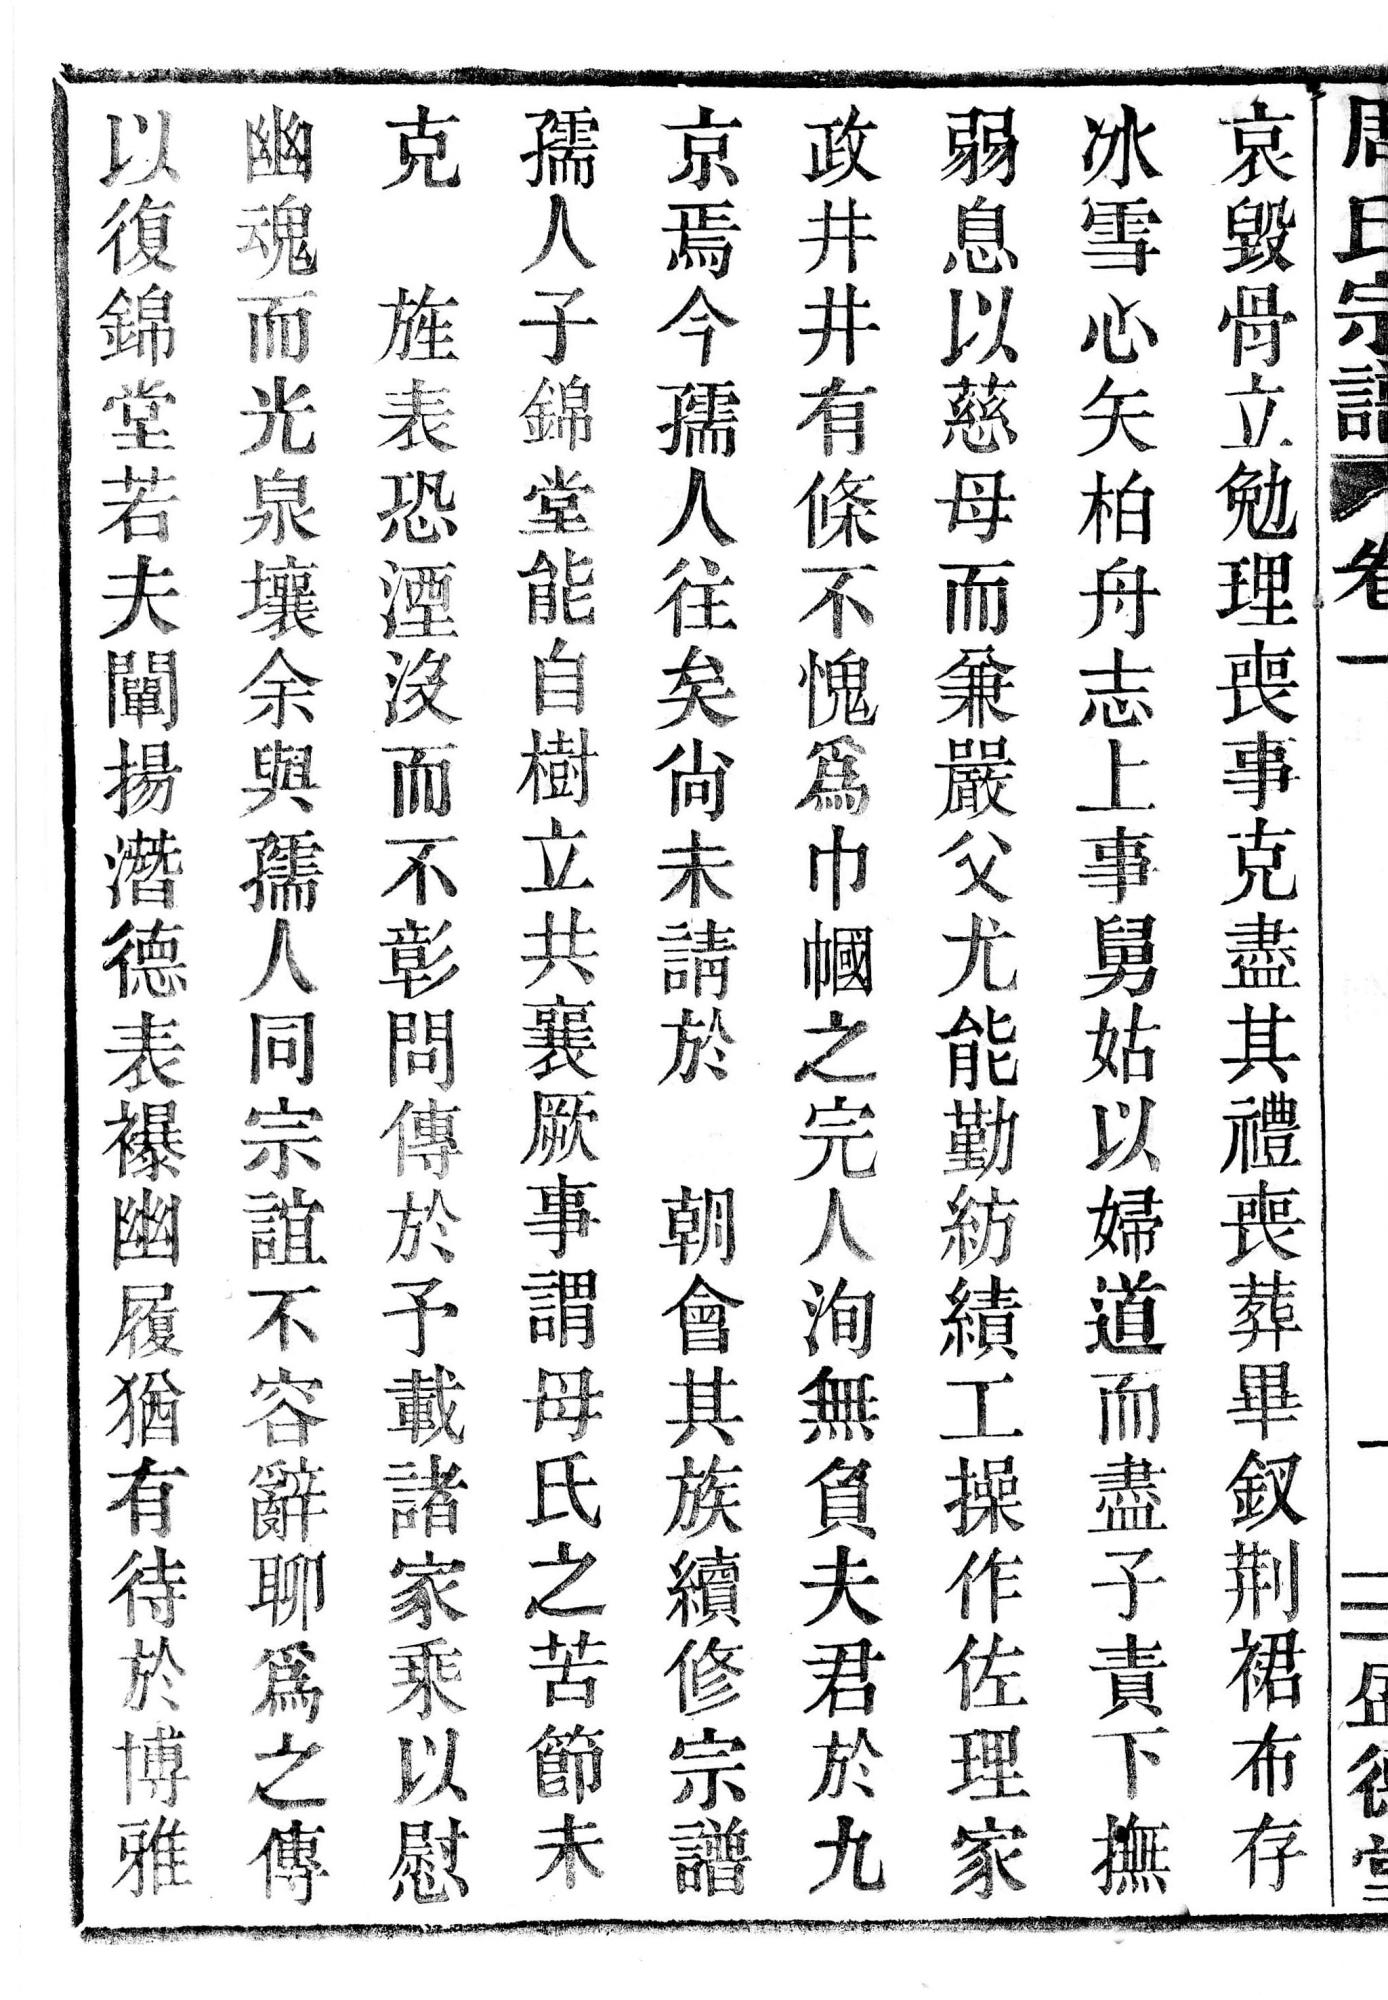 周氏宗譜 卷一 二 盛德堂
哀毀骨立勉理喪事克盡其禮喪葬畢釵荆裙布存
冰雪心矢柏舟志上事舅姑以婦道而盡子責下撫
弱息以慈母而兼嚴父尤能勤紡績工操作佐理家
政井井有條不愧爲巾幗之完人洵無負夫君於九
京焉今孺人往矣尙未請於　朝會其族續修宗譜
孺人子錦堂能自樹立共襄厥事謂母氏之苦節未
克　旌表恐湮沒而不彰問傳於予載諸家乘以慰
幽魂而光泉壤余與孺人同宗誼不容辭聊爲之傳
以復錦堂若夫闡揚潛德表襮幽履猶有待於博雅